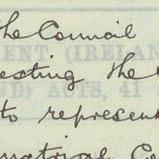 the Council
ENT (IRELAN
esting the
ND) ACTS, 41
to represent
national C